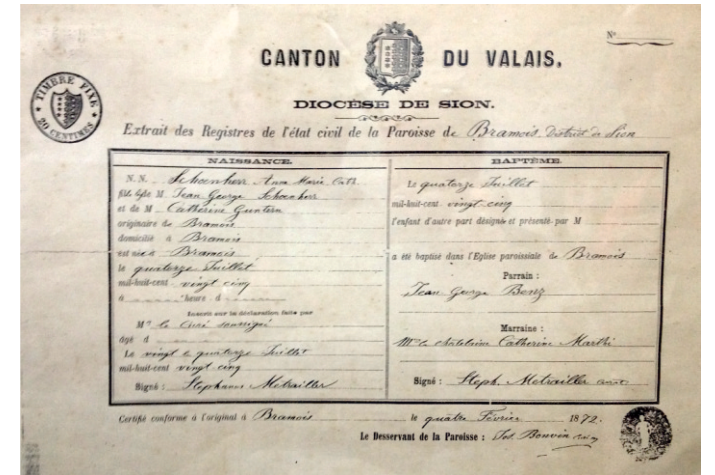 Nº
CANTON DU VALAIS.
TIMBRE FIXE
20 CENTIMES
DIOCÈSE DE SION.
Extrait des Registres de l'état civil de la Paroisse de Bramois District de Sion
NAISSANCE.
N. N. Schoenherr Anna Marie Cath.
fille M Jean George Schoenherr
et de M Catherine Guntern
originaire de Bramois
domicilié à Bramois
est né à Bramois
le quatorze Juillet
mil-huit-cent vingt cinq
à heure d
Inscrit sur la déclaration faite par
Mr le Curé soussigné
âgé d
Le vingt quatorze Juillet
mil-huit-cent vingt cinq
Signé : Stephanus Metrailler
BAPTÊME.
Le quatorze Juillet
mil-huit-cent vingt cinq
l'enfant d'autre part désigné et présenté par M
a été baptisé dans l'Eglise paroissiale de Bramois
Parrain :
Jean George Benz
Marraine :
Catherine Marthi
Signé : Steph. Metrailler
Certifié conforme à l'original à Bramois le quatre Février 1872.
Le Desservant de la Paroisse : Jos. Bonvin